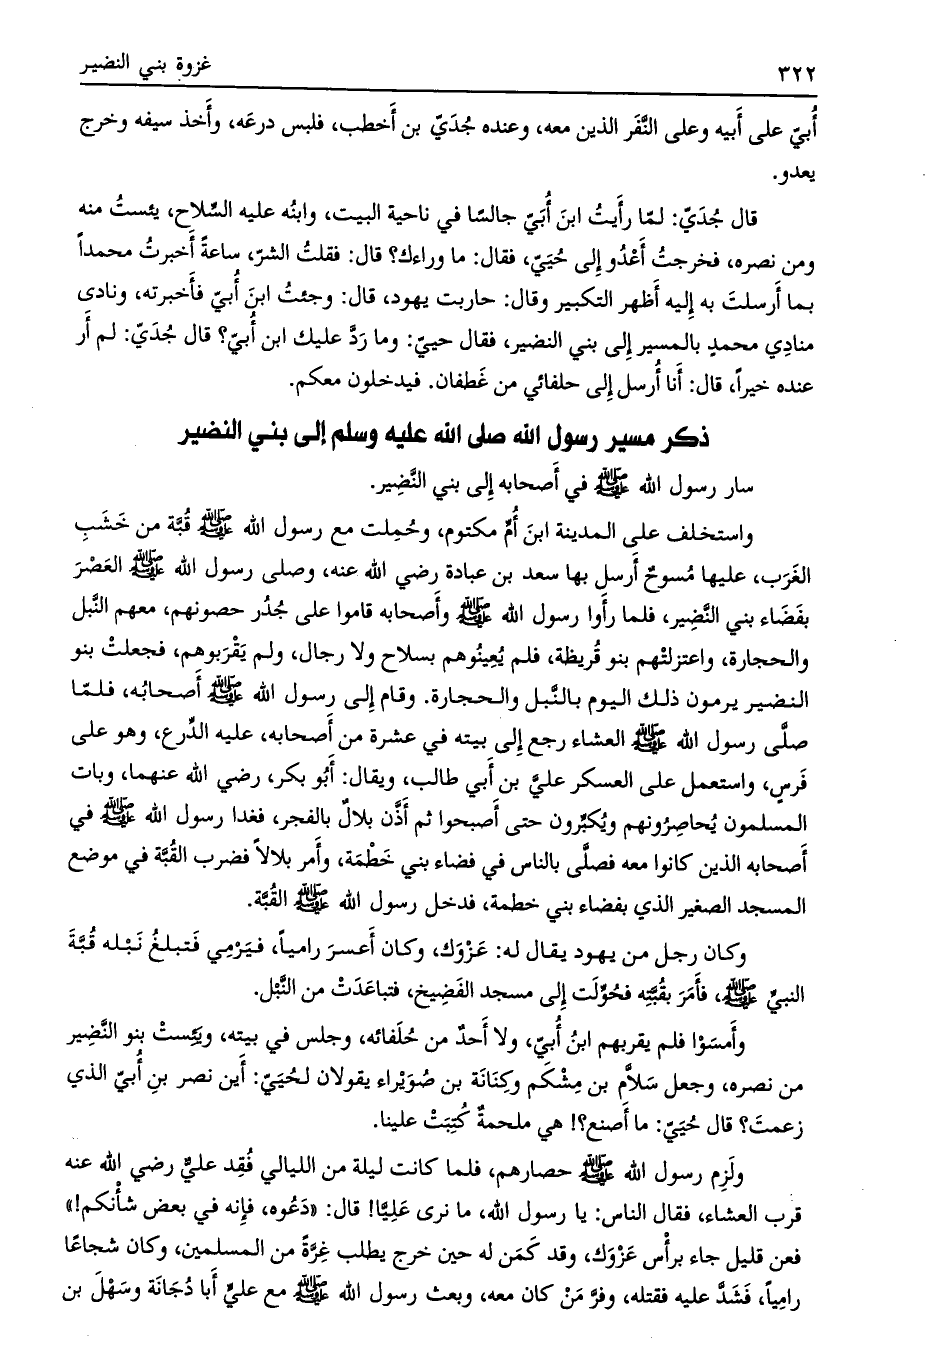 ٣٢٢ غزوة بني النضير
أُبيّ على أَبيه وعلى النَّفَر الذين معه، وعنده جُدَيّ بن أَخطب، فلبس درعَه، وأَخذ سيفه وخرج
يعدو.
قال جُدَيّ: لمّا رأَيتُ ابنَ أُبَيّ جالسًا في ناحية البيت، وابنُه عليه السِّلاح، يئستُ منه
ومن نصره، فخرجتُ أَعْدُو إِلى حُيَيّ، فقال: ما وراءك؟ قال: فقلتُ الشرّ، ساعةً أَخبرتُ محمداً
بما أَرسلتَ به إِليه أَظهر التكبير وقال: حاربت يهود، قال: وجئتُ ابنَ أُبيّ فأَخبرته، ونادى
منادِي محمدٍ بالمسير إِلى بني النضير، فقال حييّ: وما رَدَّ عليك ابن أُبيّ؟ قال جُدَيّ: لم أَر
عنده خيراً، قال: أَنا أُرسل إِلى حلفائي من غَطفان. فيدخلون معكم.
ذكر مسير رسول الله صلى الله عليه وسلم إلى بني النضير
سار رسول الله ﷺ في أَصحابه إِلى بني النَّضِير.
واستخلف على المدينة ابنَ أُمِّ مكتوم، وحُمِلت مع رسول الله ﷺ قُبَّة من خَشَبِ
الغَرَب، عليها مُسوحٌ أَرسل بها سعد بن عبادة رضي الله عنه، وصلى رسول الله ﷺ العَصْرَ
بفَضَاء بني النَّضِير، فلما رأَوا رسول الله ﷺ وأَصحابه قاموا على جُدُر حصونهم، معهم النَّبل
والحجارة، واعتزلتْهم بنو قُريظة، فلم يُعِينُوهم بسلاح ولا رجال، ولم يَقْرَبوهم، فجعلتْ بنو
النضير يرمون ذلك اليوم بالنَّبل والحجارة. وقام إِلى رسول الله ﷺ أَصحابُه، فلمّا
صلَّى رسول الله ﷺ العشاء رجع إِلى بيته في عشرة من أَصحابه، عليه الدِّرع، وهو على
فَرَسٍ، واستعمل على العسكر عليَّ بن أَبي طالب، ويقال: أَبُو بكر، رضي الله عنهما، وبات
المسلمون يُحاصِرُونهم ويُكبِّرون حتى أَصبحوا ثم أَذَّن بلالٌ بالفجر، فغدا رسول الله ﷺ في
أَصحابه الذين كانوا معه فصلَّى بالناس في فضاء بني خَطْمَة، وأَمر بلالاً فضرب القُبَّة في موضع
المسجد الصغير الذي بفضاء بني خطمة، فدخل رسول الله ﷺ القُبَّة.
وكان رجل من يهود يقال له: عَزْوَك، وكان أَعسرَ رامياً، فيَرْمِي فَتبلغُ نَبْله قُبَّةَ
النبيِّ ﷺ، فأَمَرَ بقُبَّتِه فحُوِّلَت إِلى مسجد الفَضِيخ، فتباعَدَتْ من النَّبْل.
وأَمسَوْا فلم يقربهم ابنُ أُبيّ، ولا أَحدٌ من حُلَفائه، وجلس في بيته، ويَئِستْ بنو النَّضِير
من نصره، وجعل سَلاَّم بن مِشْكَم وكِنَانَة بن صُوَيْراء يقولان لحُيَيّ: أَين نصر بنِ أُبيّ الذي
زعمتَ؟ قال حُيَيّ: ما أَصنع؟! هي ملحمةٌ كُتِبَتْ علينا.
ولَزِم رسول الله ﷺ حصارهم، فلما كانت ليلة من الليالي فُقِد عليٌّ رضي الله عنه
قرب العشاء، فقال الناس: يا رسول الله، ما نرى عَلِيًّا! قال: «دَعُوه، فإِنه في بعض شأْنكم!»
فعن قليل جاء برأْس عَزْوَك، وقد كَمَن له حين خرج يطلب غِرَّةً من المسلمين، وكان شجاعًا
رامِياً، فَشَدَّ عليه فقتله، وفرَّ مَنْ كان معه، وبعث رسول الله ﷺ مع عليّ أَبا دُجَانَة وسَهْلَ بن